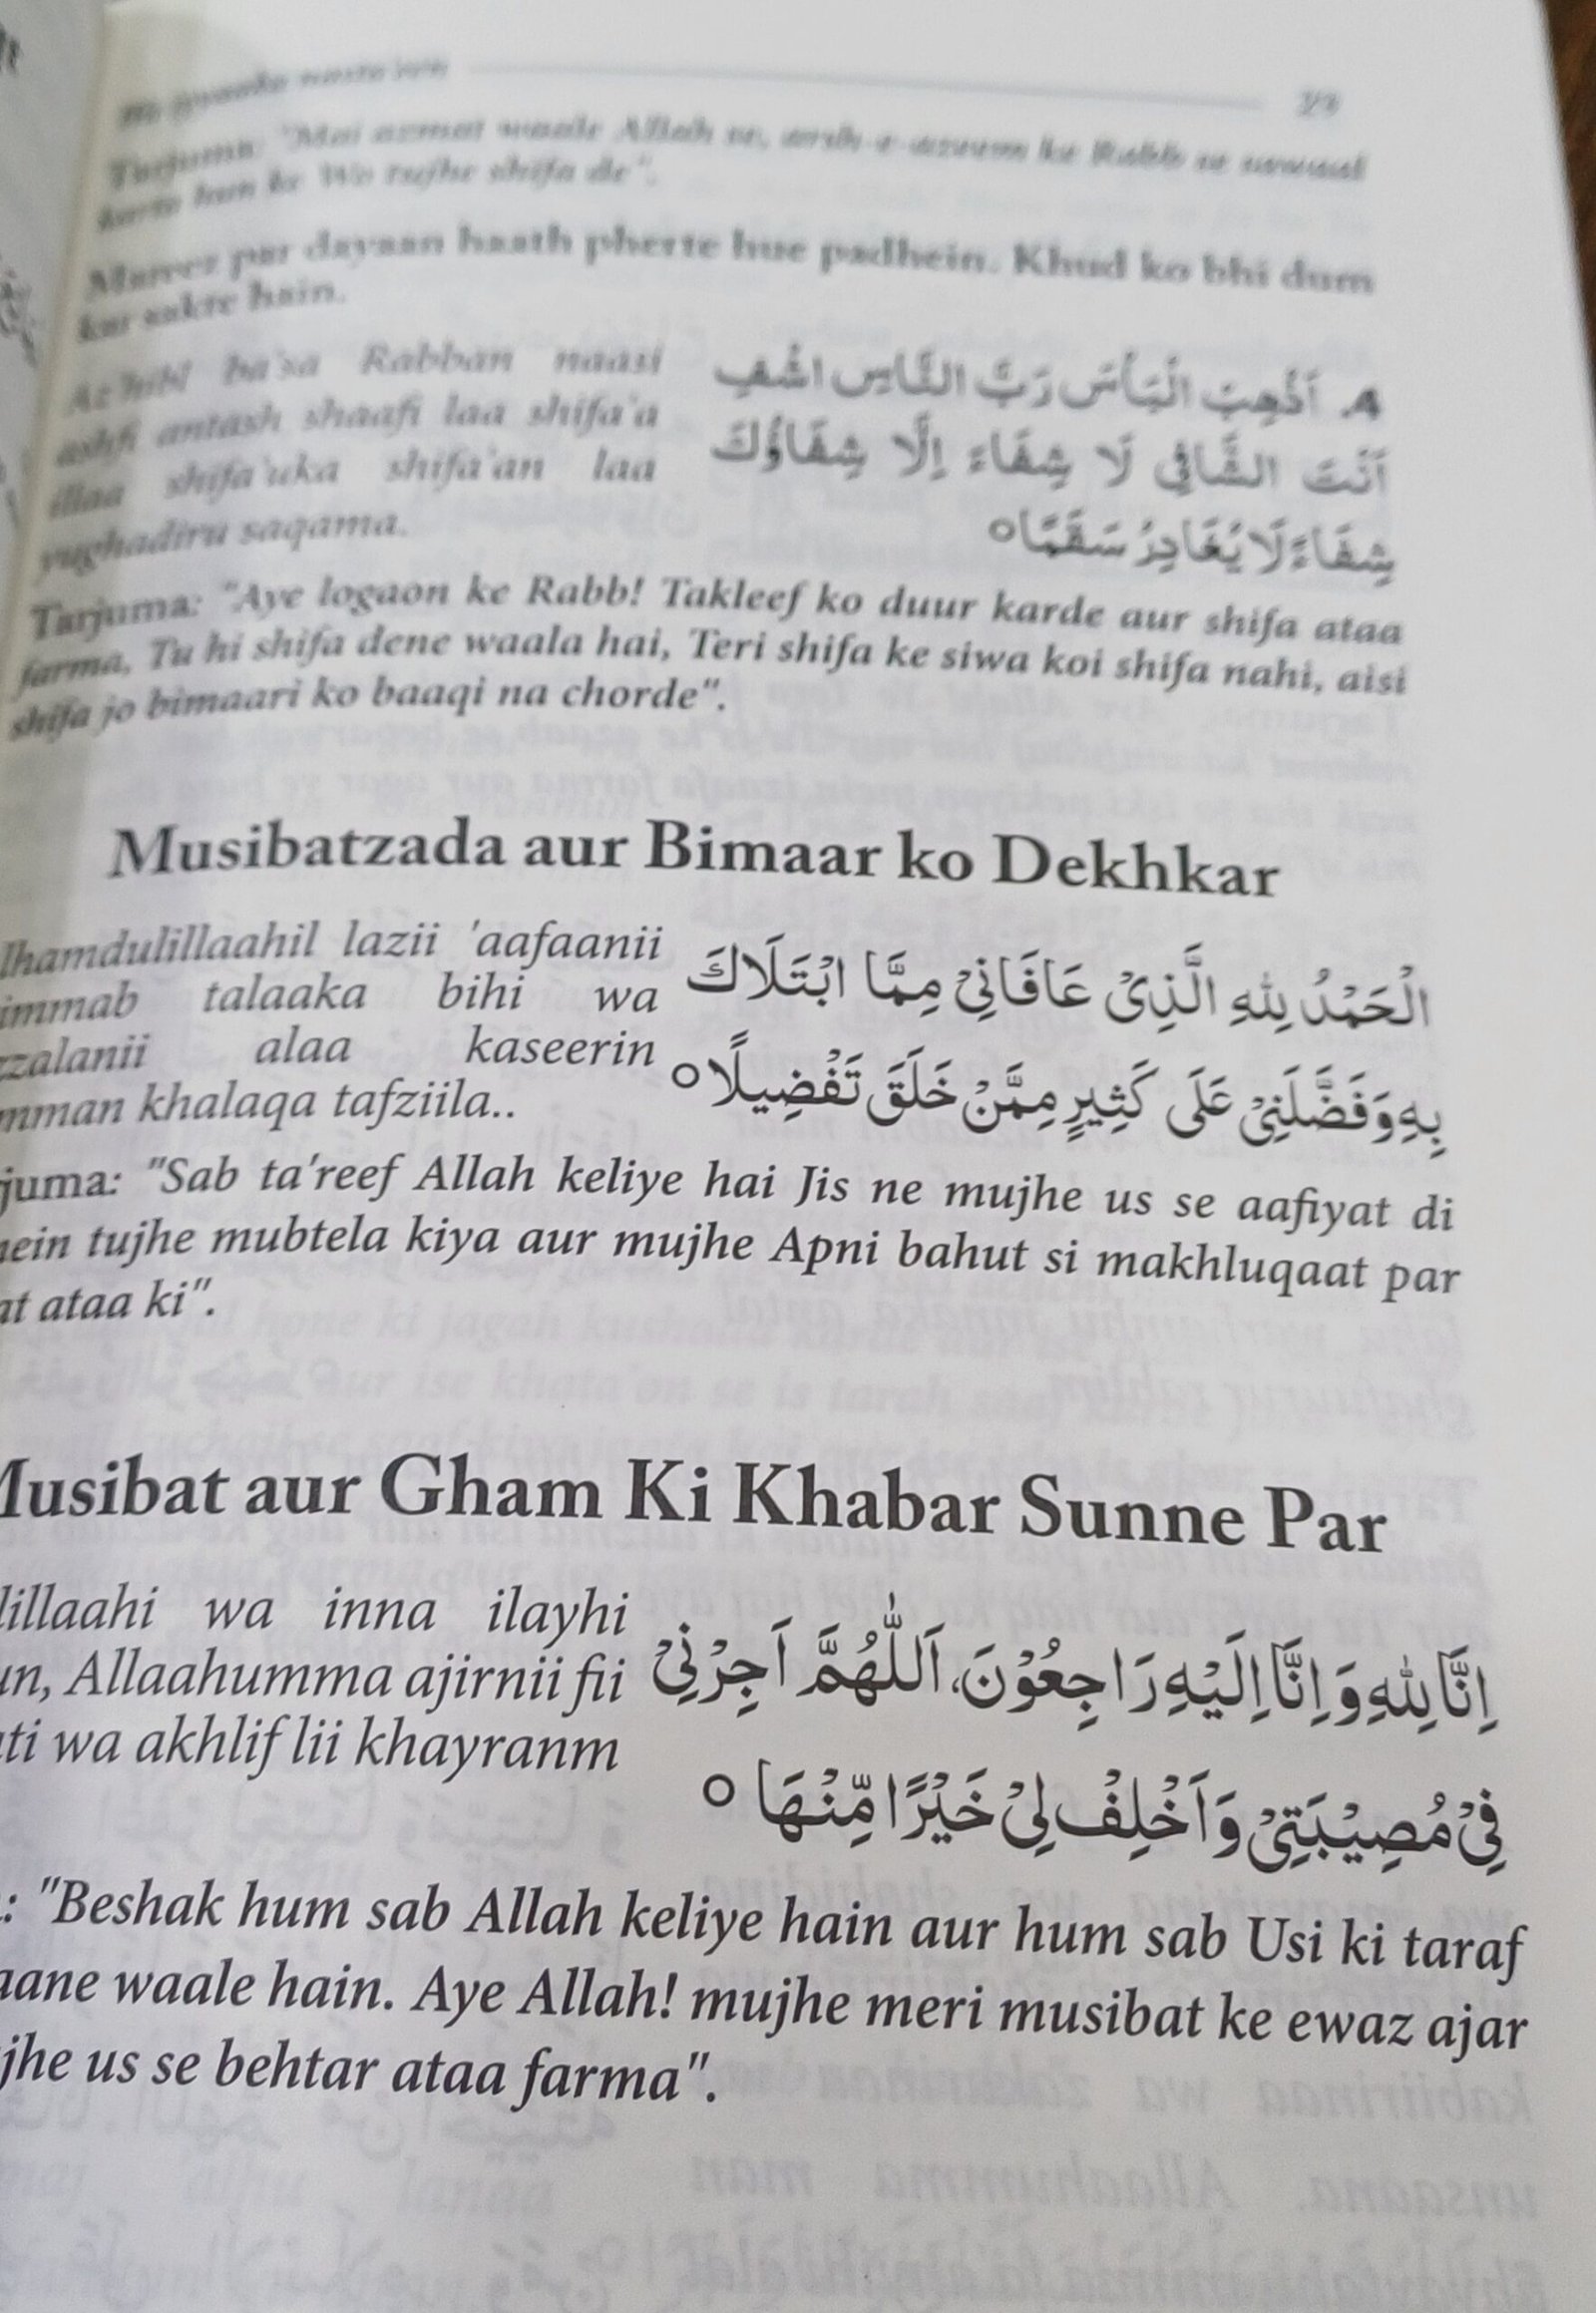 Wa iyyaaka nasta'iin 29
Tarjuma: "Mai azmat waale Allah se, arsh-e-azeem ke Rabb se sawaal
karta hun ke Wo tujhe shifa de".
Mareez par dayaan haath pherte hue padhein. Khud ko bhi dum
kar sakte hain.
Az'hibl ba'sa Rabban naasi
ashfi antash shaafi laa shifa'a
illaa shifa'uka shifa'an laa
yughadiru saqama.
.4 اَذْهِبِ الْبَأْسَ رَبَّ النَّاسِ اشْفِ
اَنْتَ الشَّافِي لَا شِفَاءَ اِلَّا شِفَاؤُكَ
شِفَاءً لَا يُغَادِرُ سَقَمًا ○
Tarjuma: "Aye logaon ke Rabb! Takleef ko duur karde aur shifa ataa
farma, Tu hi shifa dene waala hai, Teri shifa ke siwa koi shifa nahi, aisi
shifa jo bimaari ko baaqi na chorde".
Musibatzada aur Bimaar ko Dekhkar
lhamdulillaahil lazii 'aafaanii
immab talaaka bihi wa
zzalanii alaa kaseerin
mman khalaqa tafziila..
الْحَمْدُ لِلّٰهِ الَّذِىْ عَافَانِىْ مِمَّا ابْتَلَاكَ
بِهٖ وَفَضَّلَنِىْ عَلَى كَثِيرٍ مِمَّنْ خَلَقَ تَفْضِيلًا ○
juma: "Sab ta'reef Allah keliye hai Jis ne mujhe us se aafiyat di
mein tujhe mubtela kiya aur mujhe Apni bahut si makhluqaat par
at ataa ki".
Musibat aur Gham Ki Khabar Sunne Par
lillaahi wa inna ilayhi
un, Allaahumma ajirnii fii
ati wa akhlif lii khayranm
اِنَّا لِلّٰهِ وَاِنَّا اِلَيْهِ رَاجِعُوْنَ، اَللّٰهُمَّ اَجِرْنِىْ
فِىْ مُصِيْبَتِىْ وَاَخْلِفْ لِىْ خَيْرًا مِّنْهَا ○
: "Beshak hum sab Allah keliye hain aur hum sab Usi ki taraf
aane waale hain. Aye Allah! mujhe meri musibat ke ewaz ajar
jhe us se behtar ataa farma".